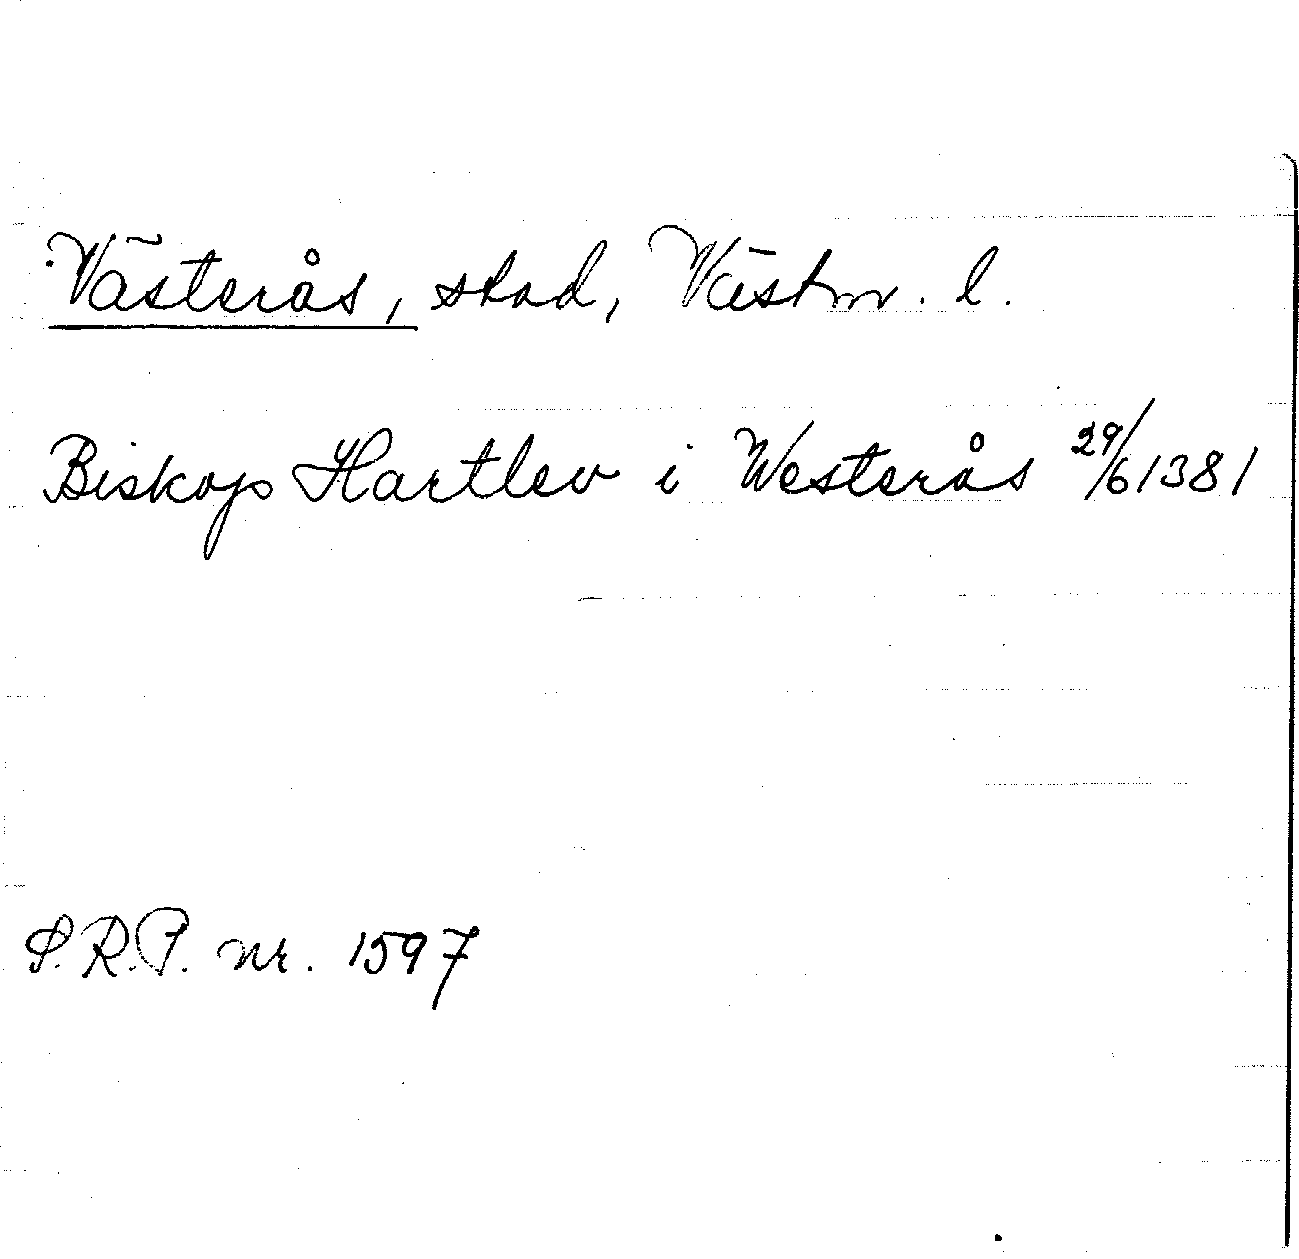 Västerås, stad, Västm. l.
Biskop Hartlev i Westerås 29/6 1381
S.R.P. nr. 1597